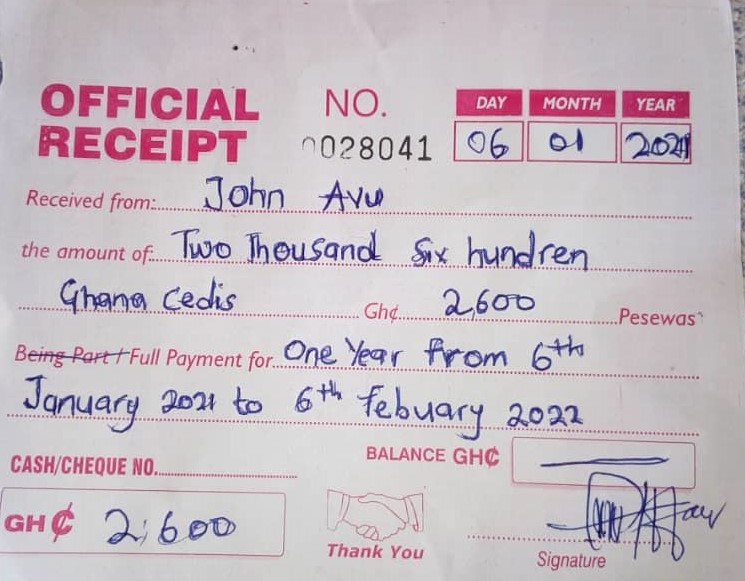 OFFICIAL RECEIPT
NO. 0028041
DAY MONTH YEAR
06 01 2021
Received from: John Avu
the amount of: Two Thousand Six hundren
Ghana Cedis Gh¢ 2,600 Pesewas
Being Part / Full Payment for One Year from 6th
January 2021 to 6th febuary 2022
CASH/CHEQUE NO. BALANCE GH¢
GH¢ 2,600
Thank You
Signature